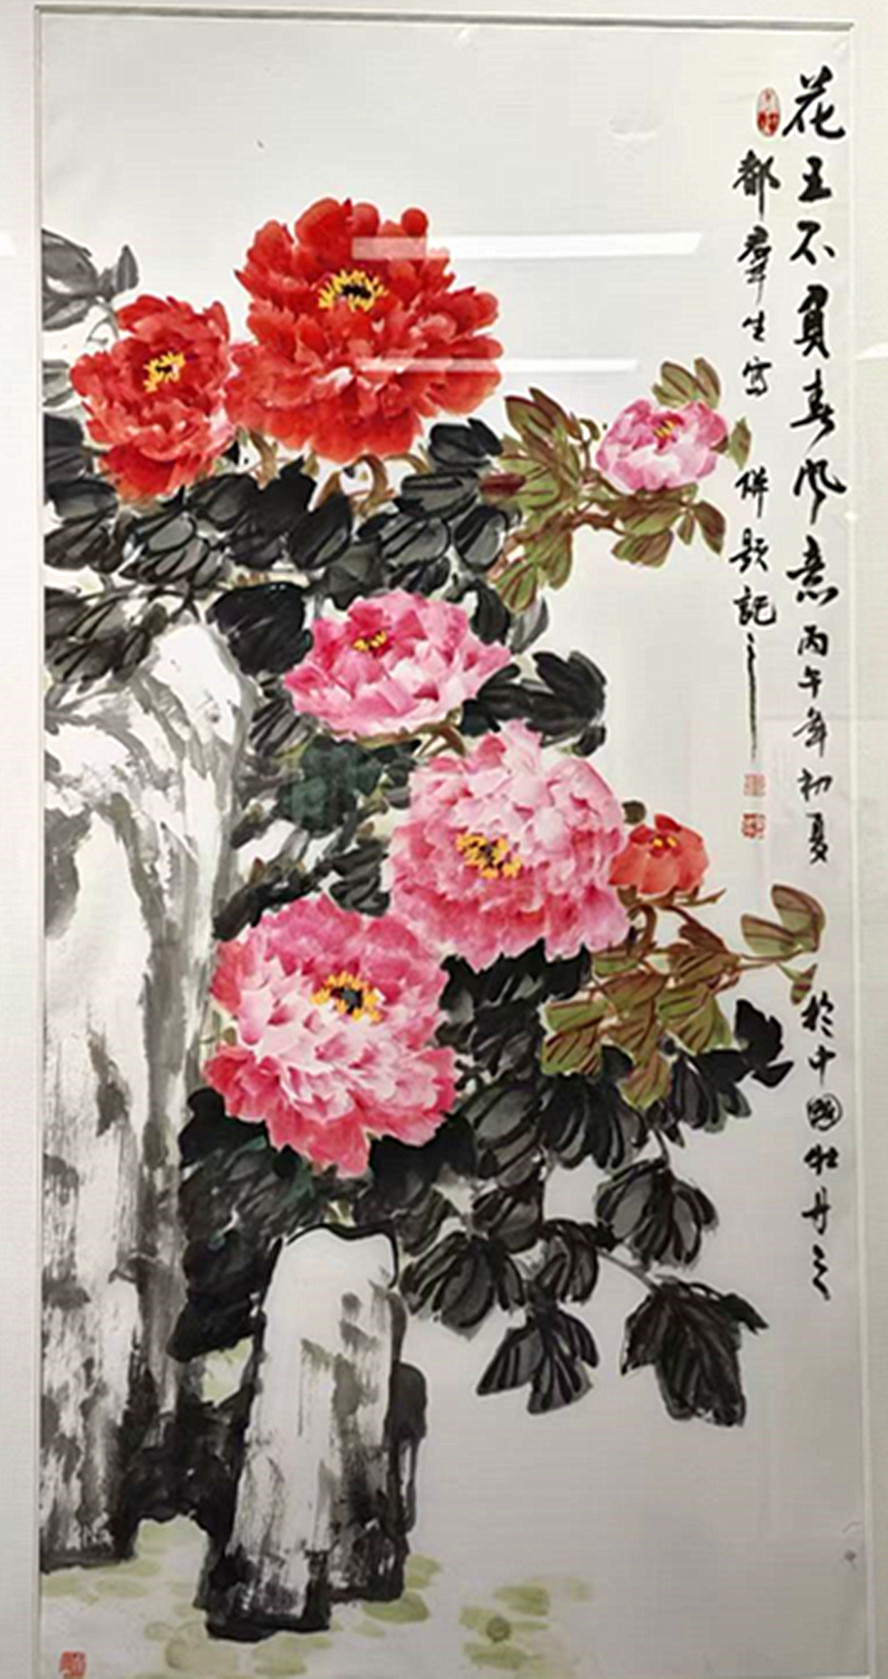 花王不負春風意丙午年初夏於中國牡丹之
都群生寫併題記之